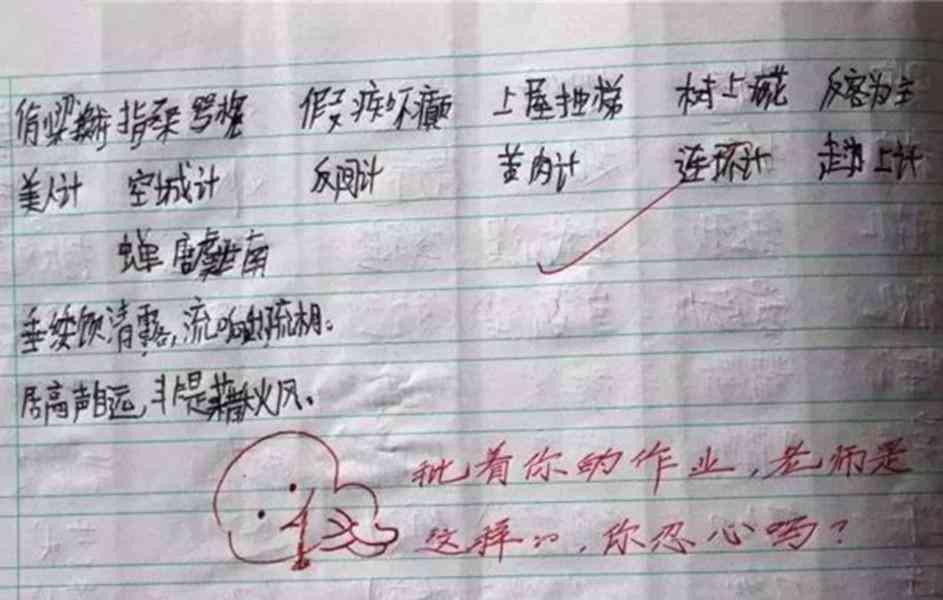 指桑骂槐 上屋抽梯 树上 反客为主
美人计 空城计 反间计 苦肉计 连环计 走为上计
蝉 唐虞世南
垂绥饮清露,流响出疏桐。
居高声自远,非是藉秋风。
批着你的作业,老师是
这样的,你忍心吗?